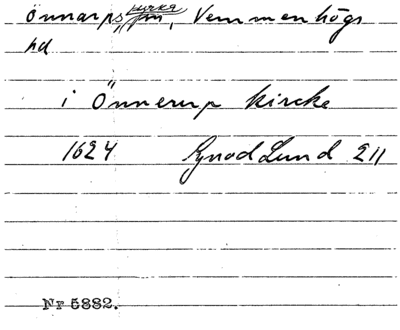 Önnarps kyrka, Vemmenhögs
hd
i Önnerup kircke
1624 Synod Lund 211
Nr 5882.